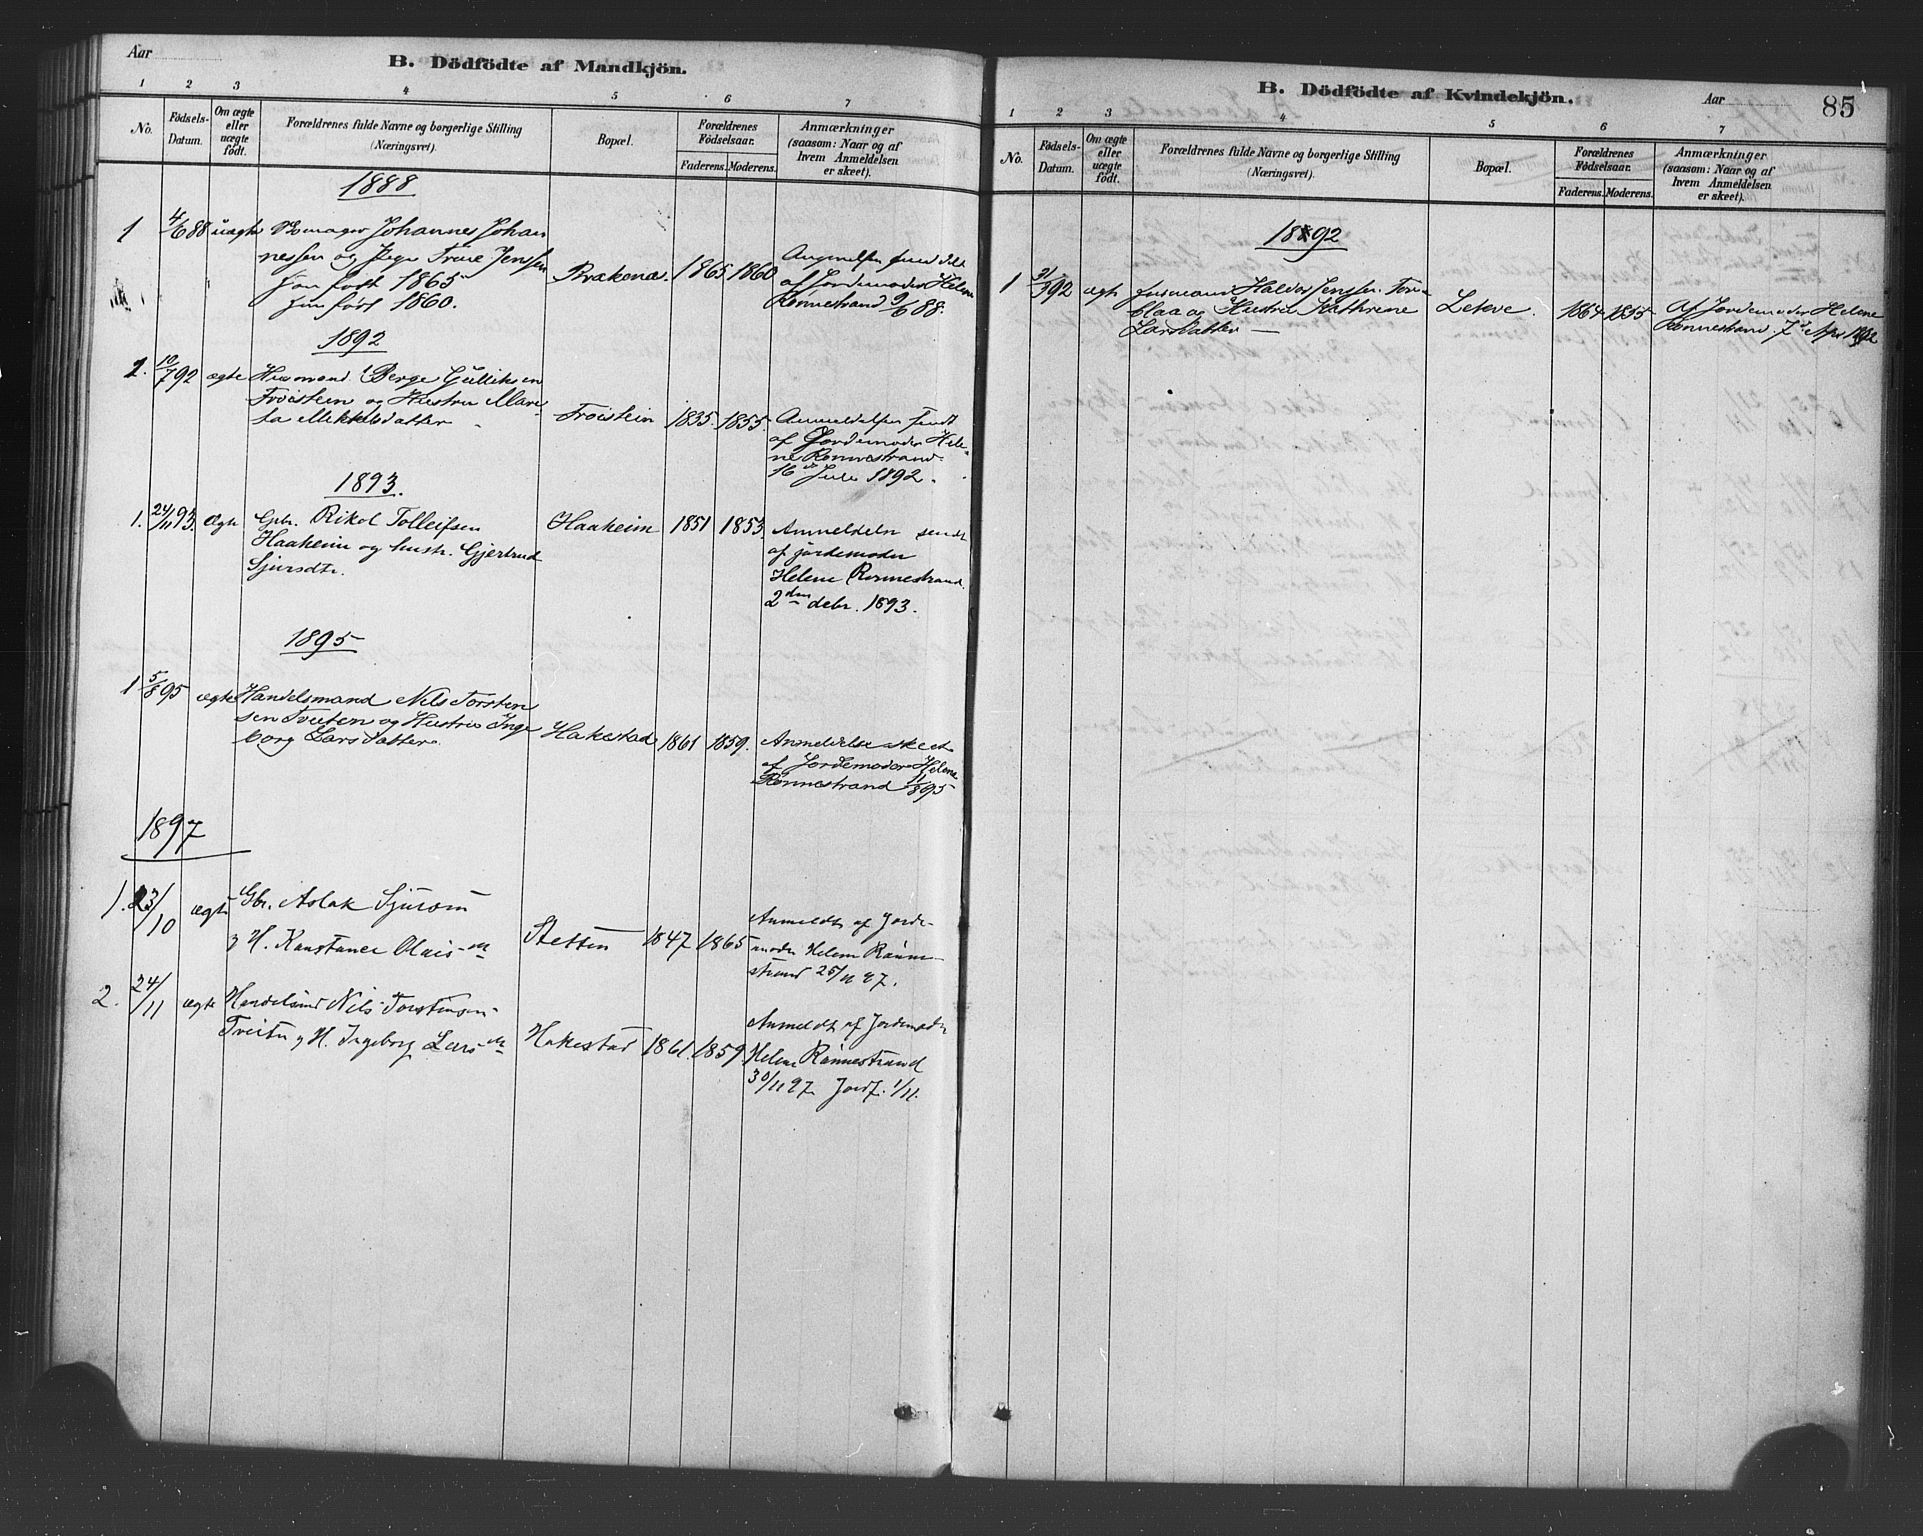 Aar
B. Dödfödte af Mandkjön.
1 2 3 4 5 6 7
No.
Fødsels-
Datum.
Om ægte
eller
uægte
født.
Forældrenes fulde Navne og borgerlige Stilling
(Næringsvei).
Bopæl.
Forældrenes
Fødselsaar.
Faderens. Moderens.
Anmærkninger
(saasom: Naar og af
hvem Anmeldelsen
er skeet).
1888
1 4/6 88 uægte Johannes Johan
nessen og Pige Jenssen
født 1865
født 1860.
1865 1860
af Jordemoder Helene
Rønnestrand 9/6 88.
1892
1. 10/7 92 ægte Husmand Berge Gulliksen
Froistein og Hustru Mari-
ta Mikkelsdatter
Froistein 1835. 1855
Anmeldelsen sendt
af Jordemoder Hele-
ne Rønnestrand
16de Juli 1892.
1893.
1. 24/11 93. Ægte Gbr. Rikol Tolleifsen
Haaheim og hustr. Gjertrud
Sjursdtr.
Haaheim 1851 1853
Anmeldeln sendt
af jordemoder
Helene Rønnestrand
2den debr. 1893.
1895
1 5/8 95 ægte Handelsmand Nils Torsten
sen Tveiten og Hustru Inge
borg Larsdatter
Hakestad 1861 1859.
Anmeldelse skeet
af Jordemoder Helene
Rønnestrand 11/8 95
1897
1. 23/10 ægte Gbr. Aslak Sjursen
H. Konstance Olais
Stetten 1847 1865
Anmeldt af Jorde-
moder Helene Rønne-
strand 25/11 97.
2. 24/11 ægte Handelsmd Nils Torstensen
Tveiten H. Ingeborg Lars
Hakestad 1861. 1859
Anmeldt af Jordemoder
Helene Rønnestrand
30/11 97. Jordf. 1/11.
B. Dödfödte af Kvindekjön.
Aar
85
1 2 3 4 5 6 7
No.
Fødsels-
Datum.
Om ægte
eller
uægte
født.
Forældrenes fulde Navne og borgerlige Stilling
(Næringsvei).
Bopæl.
Forældrenes
Fødselsaar.
Faderens. Moderens.
Anmærkninger
(saasom: Naar og af
hvem Anmeldelsen
er skeet).
1892
1 31/3 92 ægte Haldor Jenssen
og Hustru Kathrine
Larsdatter
Lekve. 1864 1855
Af Jordemoder Helene
Rønnestrand 7de Apr 1892